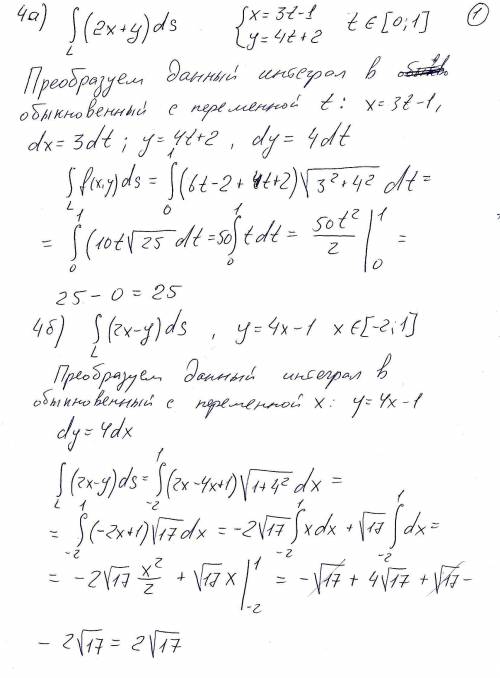 4а) ∫_L (2x+y) ds { x = 3t-1 y = 4t+2 t ∈ [0;1] ①
Преобразуем данный интеграл в
обыкновенный с переменной t: x=3t-1,
dx = 3dt ; y = 4t+2 , dy = 4dt
∫_L f(x,y) ds = ∫_0^1 (6t-2 + 4t+2) √(3²+4²) dt =
= ∫_0^1 (10t √25 dt = 50 ∫_0^1 t dt = 50t²/2 |_0^1 =
25 - 0 = 25
4б) ∫_L (2x-y) ds , y = 4x-1 x ∈ [-2;1]
Преобразуем данный интеграл в
обыкновенный с переменной x: y=4x-1
dy = 4dx
∫_L (2x-y) ds = ∫_{-2}^1 (2x-4x+1) √(1+4²) dx =
= ∫_{-2}^1 (-2x+1) √17 dx = -2√17 ∫_{-2}^1 x dx + √17 ∫_{-2}^1 dx =
= -2√17 x²/2 + √17 x |_{-2}^1 = -√17 + 4√17 + √17 -
- 2√17 = 2√17